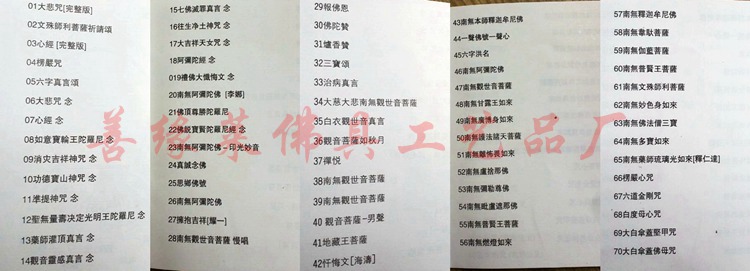 01大悲咒[完整版]
02文殊師利菩薩祈請頌
03心經[完整版]
04楞嚴咒
05六字真言頌
06大悲咒 念
07心經 念
08如意寶輪王陀羅尼 念
09消灾吉祥神咒 念
10功德寶山神咒 念
11準提神咒 念
12聖無量壽决定光明王陀羅尼 念
13藥師灌頂真言 念
14觀音靈感真言 念
15七佛滅罪真言 念
16往生净土神咒 念
17大吉祥天女咒 念
18阿彌陀經 念
019禮佛大懺悔文 念
20南無阿彌陀佛 [李娜]
21佛頂尊勝陀羅尼
22佛説寶賢陀羅尼經 念
23南無阿彌陀佛-印光妙音
24真誠念佛
25思鄉佛號
26南無阿彌陀佛
27擁抱吉祥[耀一]
28南無觀世音菩薩 慢唱
29報佛恩
30佛陀贊
31爐香贊
32三寶頌
33治病真言
34大慈大悲南無觀世音菩薩
35白衣觀世音真言
36觀音菩薩如秋月
37禪悦
38南無觀世音菩薩
39南無觀世音菩薩
40 觀音菩薩-男聲
41地藏王菩薩
42忏悔文[海濤]
43南無本師釋迦牟尼佛
44一聲佛號一聲心
45六字洪名
46南無阿彌陀佛
47南無觀世音菩薩
48南無甘露王如來
49南無廣博身如來
50南無護法諸天菩薩
51南無離怖畏如來
52南無盧捨那佛
53南無彌勒尊佛
54南無毗盧遮那佛
55南無普賢王菩薩
56南無燃燈如來
57南無釋迦牟尼佛
58南無韋馱菩薩
59南無伽藍菩薩
60南無普賢王菩薩
61南無文殊師利菩薩
62南無妙色身如來
63南無佛法僧三寶
64南無多寶如來
65南無藥師琉璃光如來[釋仁達]
66楞嚴心咒
67六道金剛咒
68白度母心咒
69大白傘蓋堅甲咒
70大白傘蓋佛母咒
善缘莱佛具工艺品厂